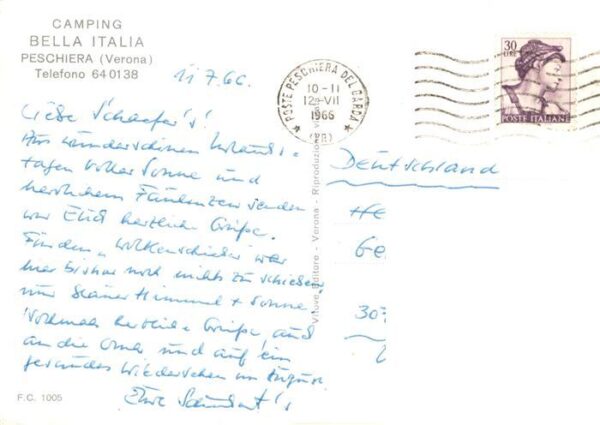 CAMPING
BELLA ITALIA
PESCHIERA (Verona)
Telefono 640138
11.7.66.
Liebe Schaefer's!
Aus wunderschönen Urlaubs-
tagen voller Sonne und
herrlichem Faulenzen senden
wir Euch herzliche Grüße.
Für den "Wolkenschieber" war
hier bisher noch nichts zu schieben
nur blauer Himmel + Sonne.
Nochmals herzliche Grüße auch
an die Oma und auf ein
gesundes Wiedersehen im August
Eure
F.C. 1005
Vitove Editore - Verona - Riproduzione
POSTE PESCHIERA DEL GARDA
10-11
12-VII
1966
(VR)
30
LIRE
POSTE ITALIANE
Deutschland
307